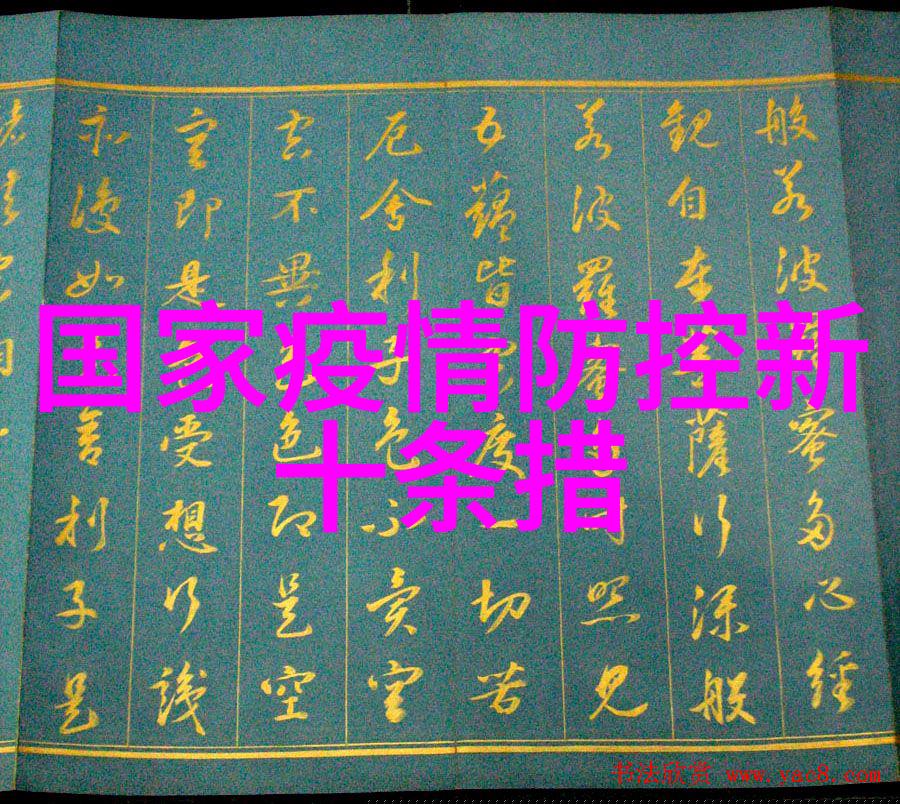 般若波羅蜜多心經
觀自在菩薩行深般
若波羅蜜多時照見
五蘊皆空度一切苦
厄舍利子色不異空
空不異色色即是空
空即是色受想行識
亦復如是舍利子是
国家疫情防控新
十条措
书法欣赏 www.yac8.com